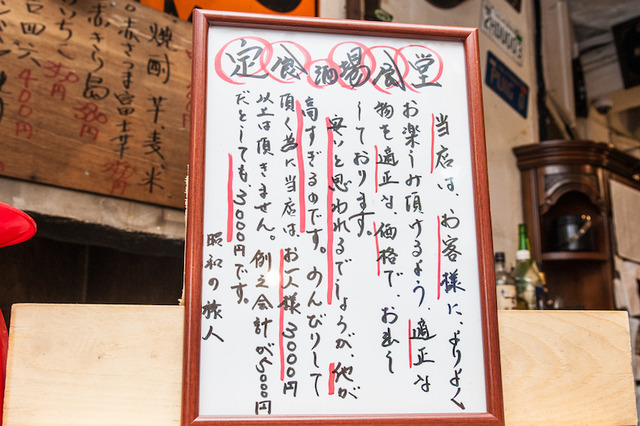 定食酒場食堂
当店は、お客様に、よりよく
お楽しみ頂けるよう、適正な
物を適正な、価格で、お出し
しております。
安いと思われるでしょうが、他が
高すぎるのです。のんびりして
頂く為に当店は、お一人様3000円
以上は頂きません。例え会計が5000円
だとしても、3000円です。
昭和の旅人
焼酎 芋 麦 米
赤さつま富士
島
400円
350円